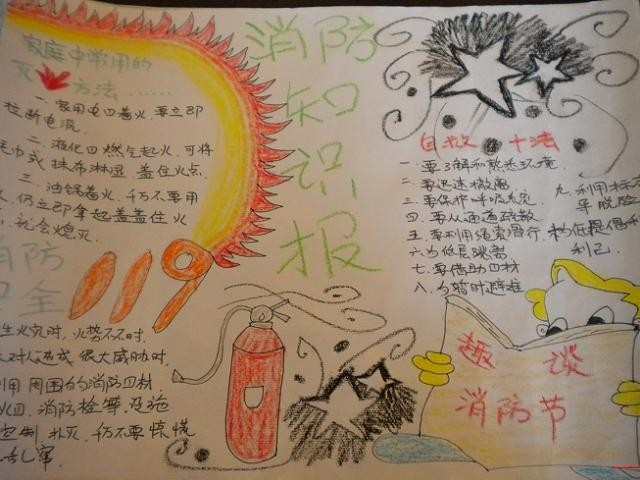 消防知识报
家庭中常用的
灭火方法……
一、家用电四着火,要立即
拉断电流.
二、液化四燃气起火,可将
毛巾或抹布淋湿,盖住火点.
三、油锅着火,千万不要用
仍立即拿起盖盖住火
就会熄灭.
消防
安全
119
生火灾时,火势不不时.
对人造成很大威胁时.
利用周围的消防四材
火四、消防栓等设施
控制扑灭,千万不要惊慌
乱窜.
自救十法
一、要了解和熟悉环境
二、要迅速撤离
三、要保护呼吸系统
四、要从通道疏散
五、要利用绳索滑行
六、为低层跳离
七、要借助四材
八、为暂时避难
九、利用标志
牢脱险
利己.
趣谈
消防节